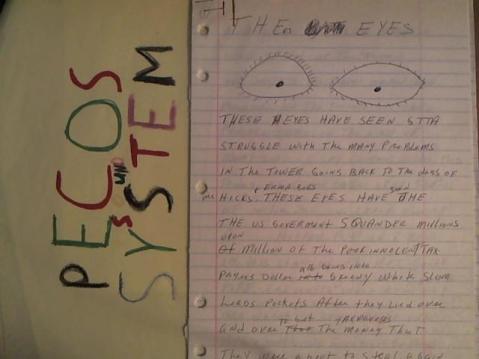 PECOS
MIND
S
SYSTEM
THEN EYES
THESE EYES HAVE SEEN
STRUGGLE with The MANY Problems
IN THE TOWER GOING BACK TO The days OF
Ms HICKS. THESE EYES HAVE
THE US GOVERMENT SQUANDER Millions
UPON
OF Million OF The POOR INNOCENT TAX
PAYERS Dollar GREEDY WhITE SLUM
LORDS POCKETS AFTER They LIED OVER
To Get
AND OVER The MONEY ThAT
They were